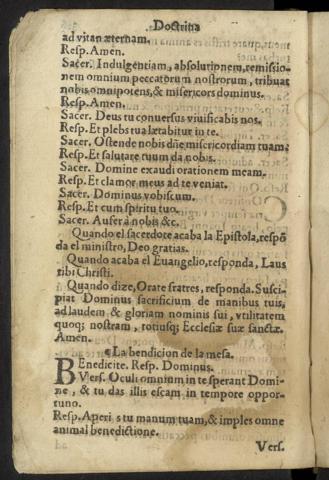 Doctrina
ad vitan æternam.
Resp. Amen.
Sacer. Indulgentiam, absolutipnem, remissio-
nem omnium peccatorum nostrorum, tribuat
nobis omnipotens, & misericors dominus.
Resp. Amen.
Sacer. Deus tu conuersus viuificabis nos.
Resp. Et plebs tua lætabitur in te.
Sacer. Ostende nobis dñe misericordiam tuam.
Resp. Et salutare tuum da nobis.
Sacer. Domine exaudi orationem meam.
Resp. Et clamor meus ad te veniat.
Sacer. Dominus vobiscum.
Resp. Et cum spiritu tuo.
Sacer. Aufer à nobis &c.
Quando el sacerdote acaba la Epistola, respõ
da el ministro, Deo gratias.
Quando acaba el Euangelio, responda, Laus
tibi Christi.
Quando dize, Orate fratres, responda. Susci-
piat Dominus sacrificium de manibus tuis,
ad laudem & gloriam nominis sui, vtilitatem
quoq; nostram, totiusq; Ecclesiæ suæ sanctæ.
Amen.
¶ La bendicion de la mesa.
Benedicite. Resp. Dominus.
Vers. Oculi omnium in te sperant Domi-
ne, & tu das illis escam in tempore oppor-
tuno.
Resp. Aperis tu manum tuam, & imples omne
animal benedictione.
Vers.